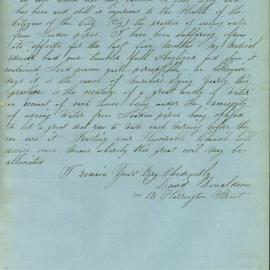 has been and still is injurious to the Health of the
Citizens of this City Viz) the practice of using water
from Leaden pipes I have been suffering from
its effects for the last five months My Medical
adviser had one tumbler full Analyzed and found it
contained Lead poison quite perceptible, an otherwise
says it is the cause of number dying yearly, this
practice is the occasion of a great waste of Water
on account of each house being under the necessity
of using Water from Leaden pipes being obliged
to let a great deal run to waste each morning before they
can use it Trusting your Honourable will
devise some means whereby this great evil may be
alleviated
I remain Yours Very Obediently
David Donaldson
13 Harrington Street